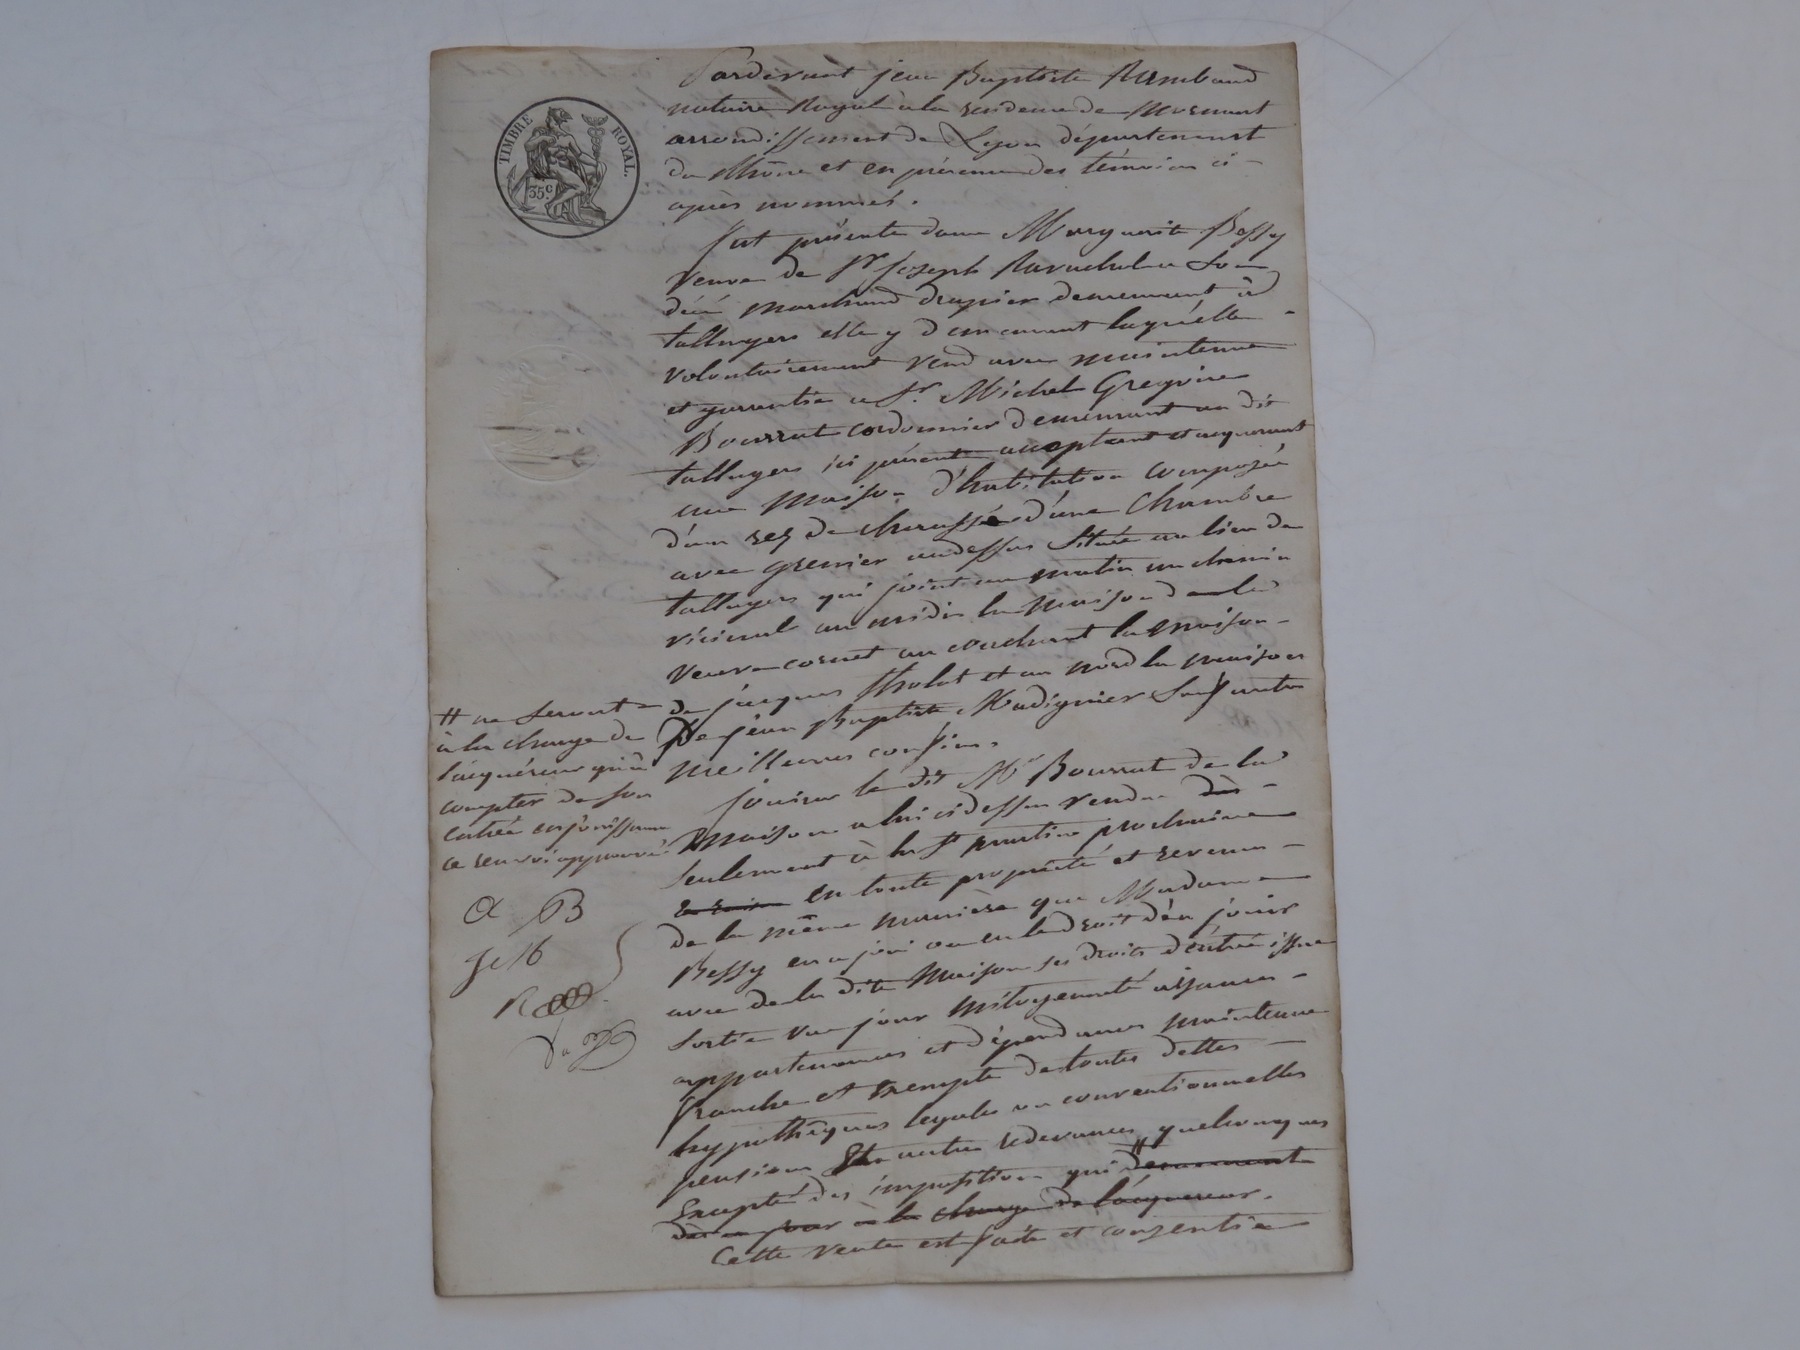 TIMBRE ROYAL.
35 c.
Pardevant jean Baptiste Rambaud
notaire Royal à la residence de Mornant
arrondissement de Lyon département
du Rhône et en présence des témoins ci-
après nommés.
fut présente dame Marguerite Bessy
veuve de Sr joseph Ravachol
décé marchand drapier demeurant à
talluyers elle y demeurant laquelle
volontairement vend avec maintenue
et garrentie a Sr. Michel Gregoire
Bourrat cordonnier demeurant au dit
talluyers ici présent acceptant et acquerant
une maison d'habitation composée
d'un rez de chaussée d'une Chambre
avec grenier au dessus située au lieu de
talluyers qui joint au matin un chemin
vicinal au midi la maison de la
veuve cornet au couchant la maison
de jacques tholot et au nord la maison
de jean Baptiste Madignier Sauf autre
meilleures confins.
jouira le dit Mr Bourrat de la
maison a lui ci dessus vendue dès
seulement à la St martin prochaine
en toute propriété et revenu
de la même manière que Madame
Bessy en a joui ou eu le droit d'en jouir
avec de la dite Maison ses droits d'entrée issue
Sortie vue jour mitoyenneté aisances
appartenances et dépendances maintenue
franche et exempte de toutes dettes
hypothèques legales ou conventionnelles
pension et autres redevances quelconques
Excepté des imposition qui # demeurent
dès ce jour à la charge de l'acquereur.
Cette vente est faite et consentie
# ne seront
à la charge de
l'acquéreur qu'à
compter de son
entrée en jouissance
ce renvoi approuvé
B